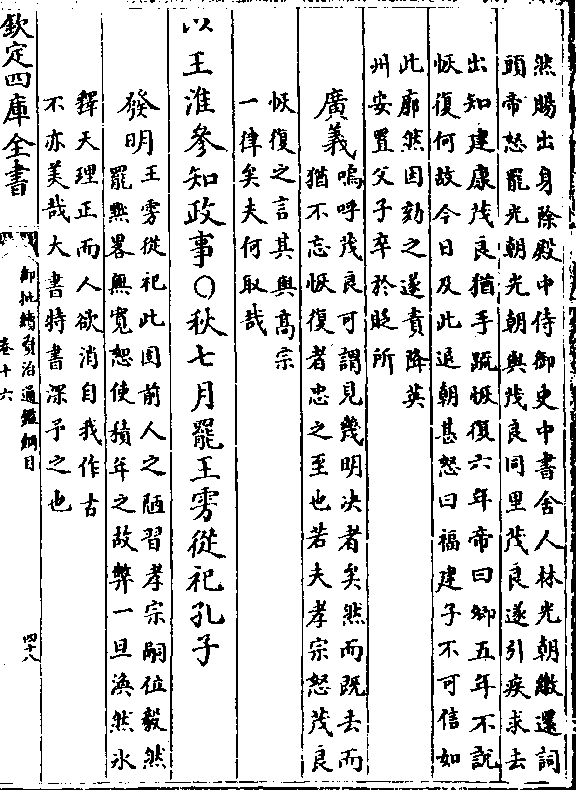 然賜出身除殿中侍御史中書舍人林光朝繳還詞
頭帝怒罷光朝光朝與茂良同里茂良遂引疾求去
出知建康茂良猶手疏恢復六年帝曰卿五年不說
恢復何故今日及此退朝甚怒曰福建子不可信如
此廓然因劾之遂責降英
州安置父子卒於貶所
廣義嗚呼茂良可謂見幾明決者矣然而既去而
猶不忘恢復者忠之至也若夫孝宗怒茂良
恢復之言其與高宗
一律矣夫何取哉
以王淮參知政事○秋七月罷王雱從祀孔子
發明王雱從祀此固前人之陋習孝宗嗣位毅然
罷黜畧無寬恕使積年之故弊一旦渙然氷
釋天理正而人欲消自我作古
不亦美哉大書特書深予之也
欽定四庫全書
御批續資治通鑑綱目
卷十六
四十八